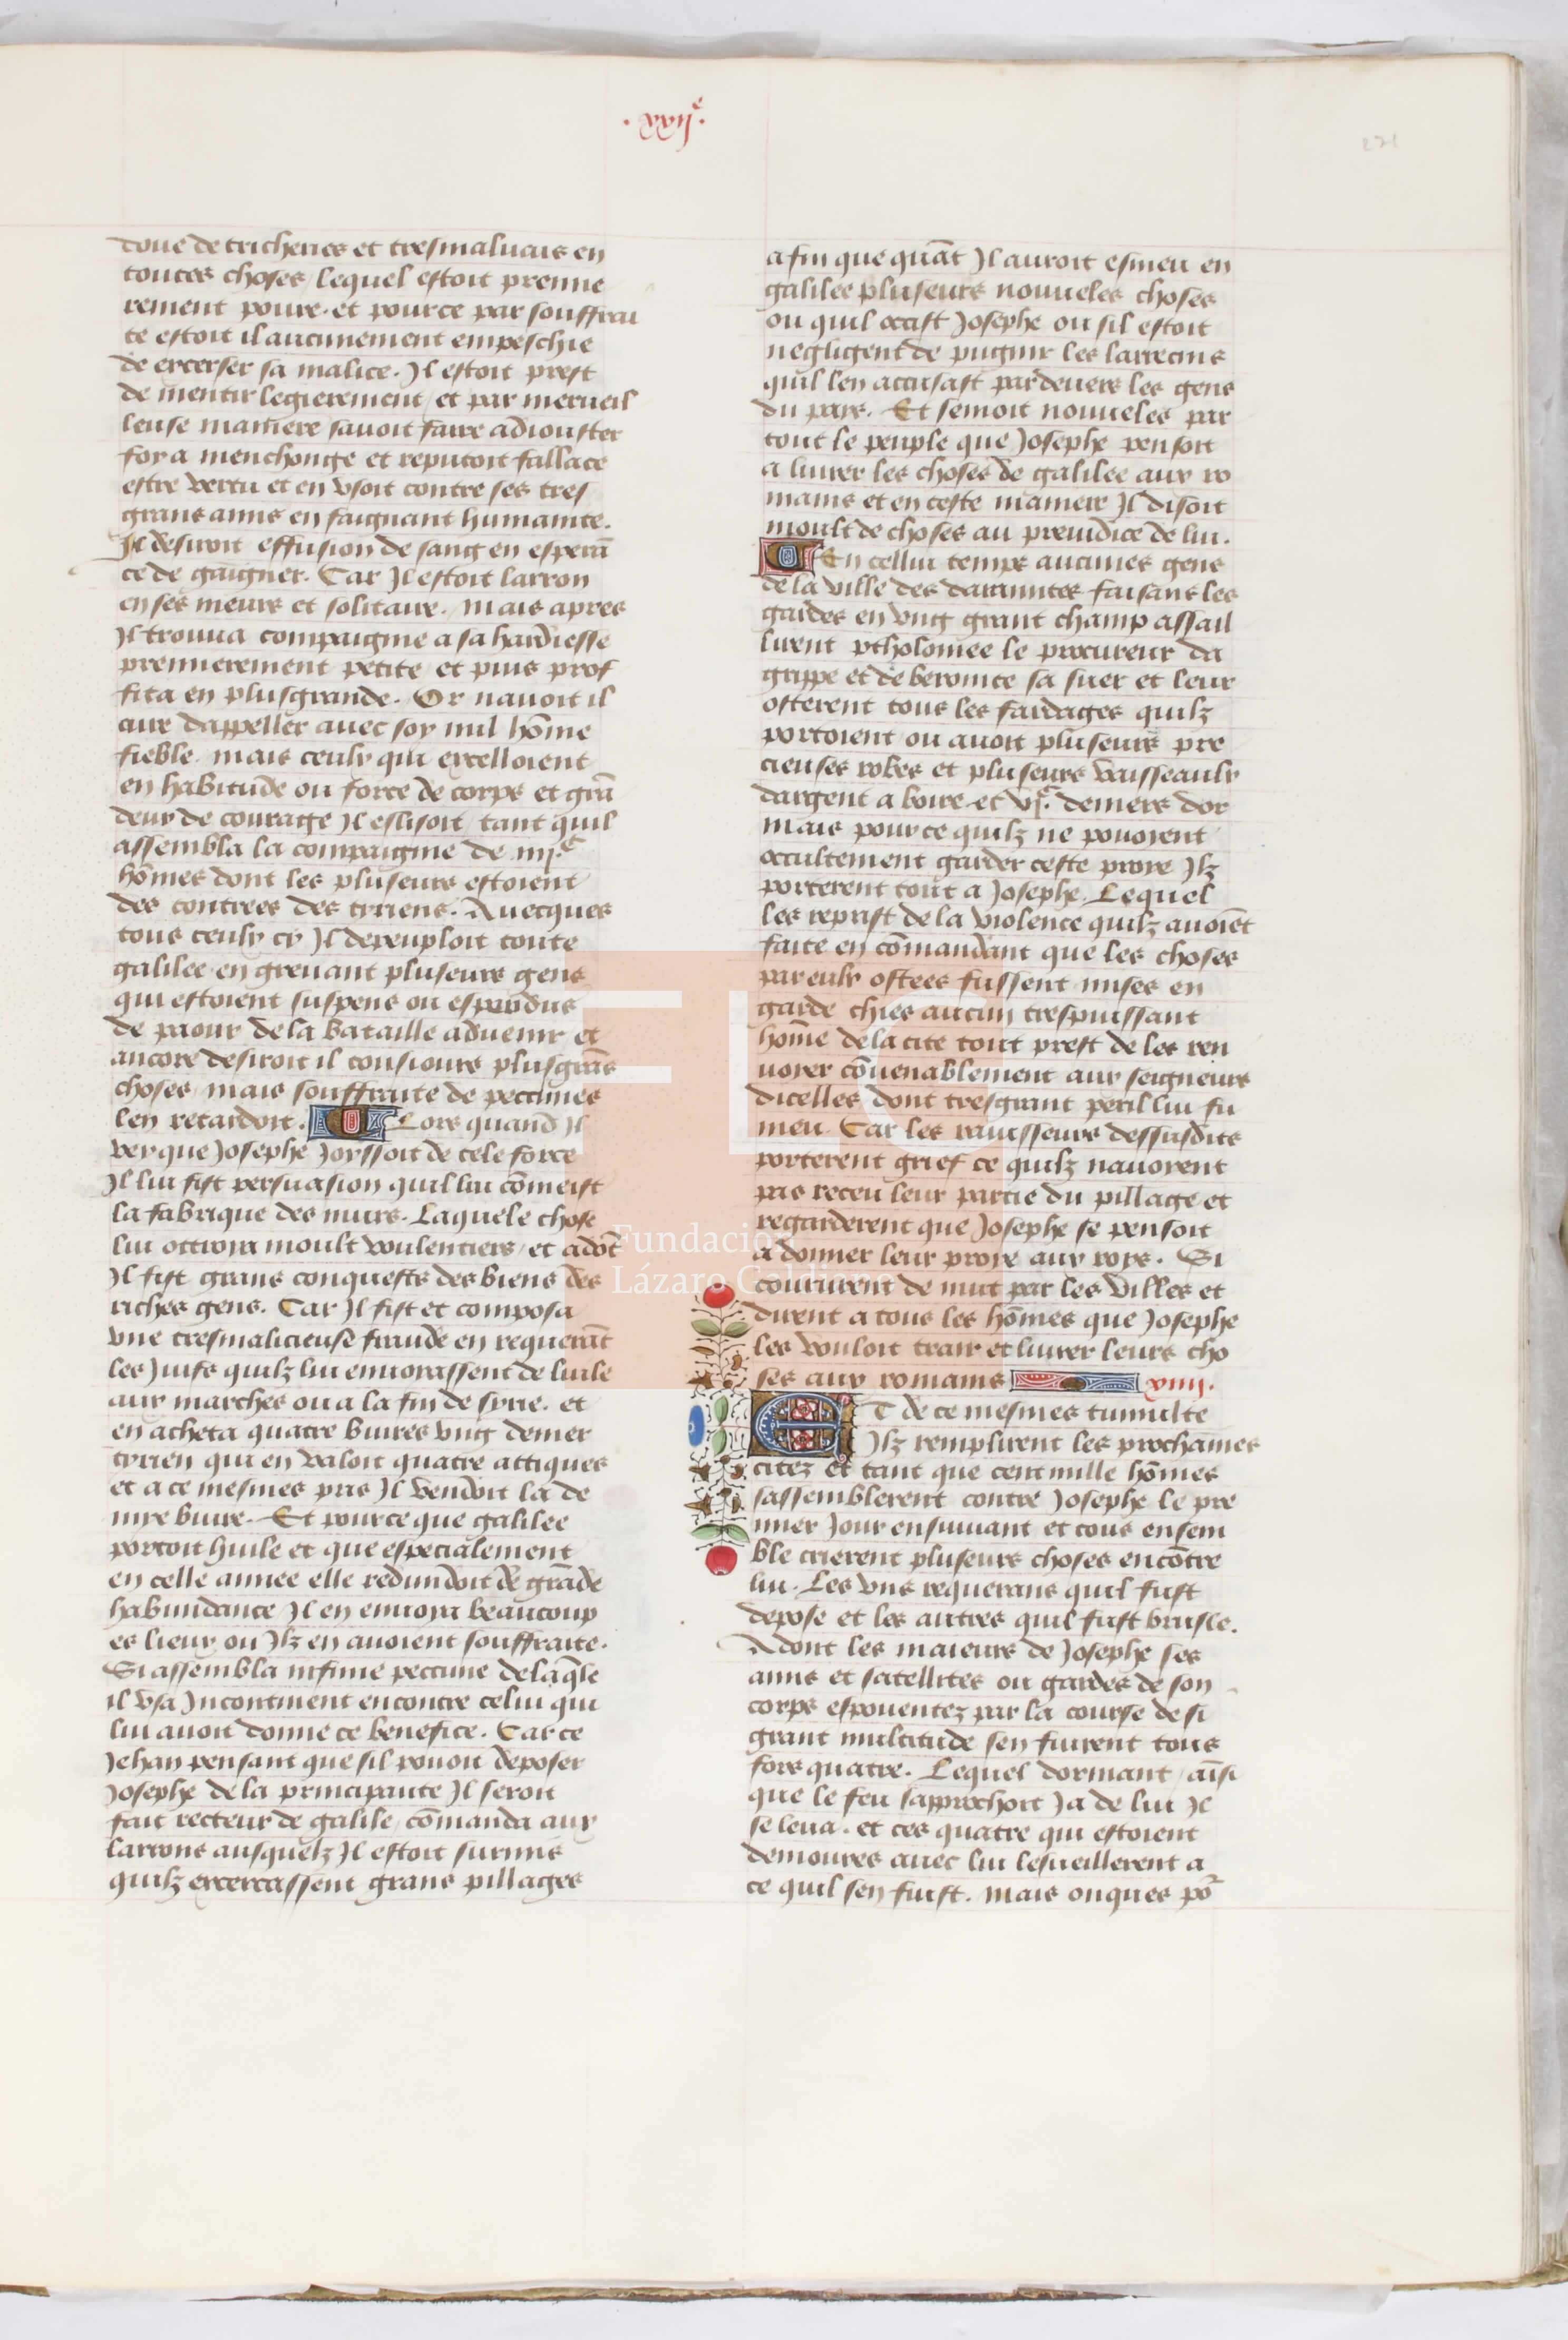 .xxii.e
221
doue de tricheries et tresmaluais en
toutes choses / lequel estoit premie
rement poure. et pource par souffrai
te estoit il aucunement empeschie
de excerser sa malice. Il estoit prest
de mentir legierement / et par merueil
leuse maniere sauoit faire adiouster
foy a menchonge et reputoit fallace
estre vertu et en vsoit contre ses tres
grans amis en faignant humanite.
Il desiroit effusion de sang en esperā
ce de gaigner. Car Il estoit larron
en ses meurs et solitaire. mais apres
Il trouua compaignie a sa hardiesse
premierement petite et puis prof
fita en plusgrande. Or nauoit il
cure dappeller auec soy nul hōme
fieble. mais ceulx qui excelloient
en habitude ou force de corps et grā
deur de courage Il eslisoit / tant quil
assembla la compaignie de iiij.c
hōmes dont les pluseurs estoient
des contrees des tyriens. Auecques
tous ceulx cy Il depeuploit toute
galilee en greuant pluseurs gens
qui estoient suspens ou espardus
de paour de la bataille aduenir et
ancore desiroit il tousiours plusgrās
choses / mais souffraite de peccunes
len retardoit. Lors quand Il
vey que Josephe Joyssoit de tele force
Il lui fist persuasion quil lui cōmeist
la fabrique des murs. Laquele chose
lui ottroia moult voulentiers / et adōt
Il fist grans conquests des biens des
riches gens. Car Il fist et composa
vne tresmalicieuse fraude en requerāt
les Juifs quilz lui enuoyassent de luile
aux marches ou a la fin de syrie. et
en acheta quatre buires vng denier
tyrien qui en valoit quatre attiques
et a ce mesmes pris Il vendoit la de
mye buire. Et pource que galilee
portoit huile et que especialement
en celle annee elle redundoit de grāde
habundance Il en enuoya beaucoup
es lieux ou Ilz en auoient souffraite.
Si assembla infinie peccune de laq̄le
il vsa Incontinent encontre celui qui
lui auoit donne ce benefice. Car ce
Jehan pensant que sil pouoit deposer
Josephe de la principaute Il seroit
fait recteur de galile / cōmanda aux
larrons ausquelz Il estoit surmis
quilz excercassent grans pillages
afin que quāt Il auroit esmeu en
galilee pluseurs nouueles choses
ou quil occist Josephe ou sil estoit
negligent de pugnir les larrecins
quil len accusast par deuers les gens
du pays. Et semoit nouueles par
tout le peuple que Josephe pensoit
a liurer les choses de galilee aux ro
mains et en ceste maniere Il disoit
moult de choses au preiudice de lui.
En cellui temps aucunes gens
de la ville des darannites faisans les
gardes en vng grant champ assail
lirent ptholomee le procureur da
grippe et de beronice sa suer et leur
osterent tous les fardages quilz
portoient ou auoit pluseurs pre
cieuses robes et pluseurs vaisseaulx
dargent a boire et vj.c deniers dor
mais pource quilz ne pouoient
occultement garder ceste proye Ilz
porterent tout a Josephe. Lequel
les reprist de la violence quilz auoiēt
faite en cōmandant que les choses
par eulx ostees fussent mises en
garde chies aucun trespuissant
hōme de la cite tout prest de les ren
uoyer cōuenablement aux seigneurs
dicelles dont tresgrant peril lui fu
meu. Car les rauisseurs dessusdits
porterent grief ce quilz nauoyent
pas receu leur partie du pillage et
regarderent que Josephe se pensoit
a donner leur proye aux roys. Si
coururent de nuit par les villes et
dirent a tous les hōmes que Josephe
les vouloit trair et liurer leurs cho
ses aux romains xiiij.
ET de ce mesmes tumulte
Ilz remplirent les prochaines
citez et tant que cent mille hōmes
sassemblerent contre Josephe le pre
mier Jour ensuiuant et tous ensem
ble crierent pluseurs choses encōtre
lui. Les vns requerans quil fust
depose et les autres quil fust brusle.
Adont les maieurs de Josephe ses
amis et satellites ou gardes de son
corps espouentez par la course de si
grant multitude sen fuirent tous
fors quatre. Lequel dormant / aīsi
que le feu sapprochoit Ja de lui Il
se leua. et ces quatre qui estoient
demoures auec lui lesueillerent a
ce quil sen fuist. mais onques po
Fundación
Lázaro Galdiano